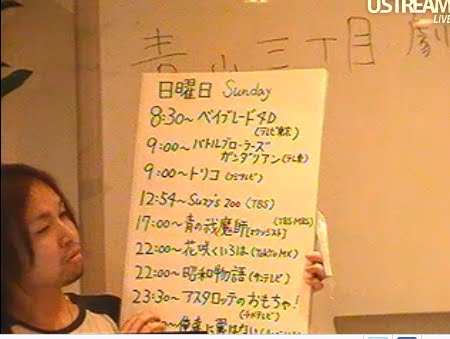 USTREAM
LIVE
青山三丁目 劇
日曜日 Sunday
8:30~ ベイブレード4D
(テレビ東京)
9:00~ バトルブローラーズ
ガンダリアン(テレ東)
9:00~ トリコ (フジテレビ)
12:54~ Suzy's Zoo (TBS)
17:00~ 青の祓魔師 (TBS・MBS)
22:00~ 花咲くいろは (TOKYO MX)
22:00~ 昭和物語 (サンテレビ)
23:30~ アスタロッテのおもちゃ!
(チバテレビ)
俺達に翼はない